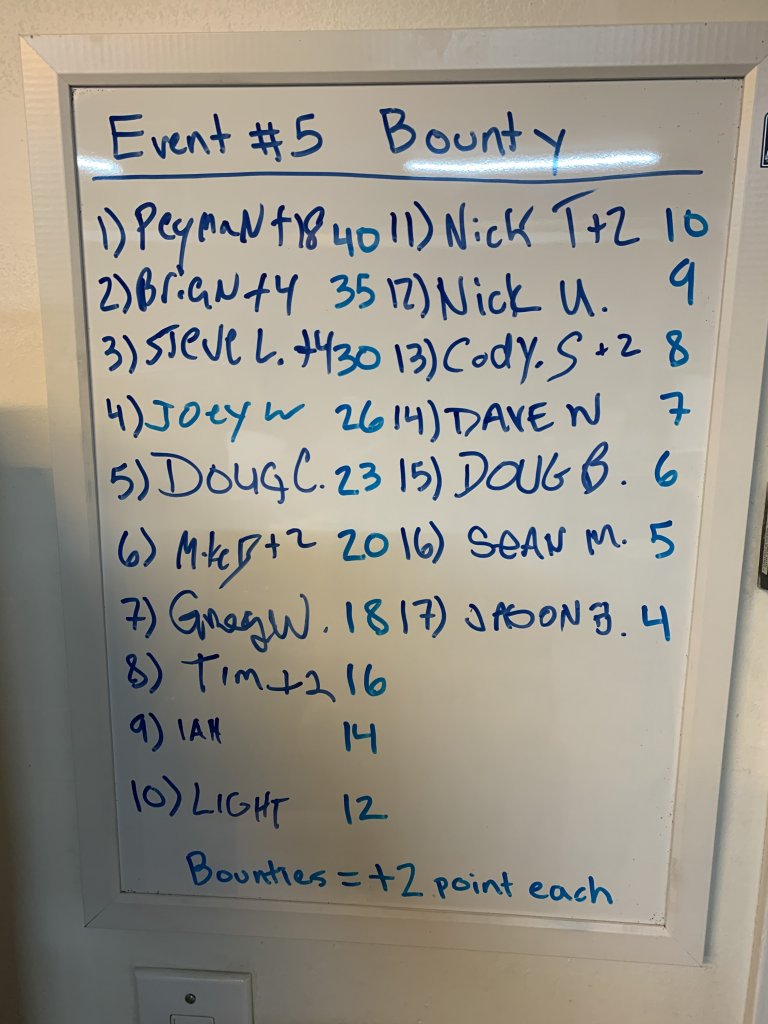 Event #5 Bounty
1) Peyman +18 40 11) Nick T +2 10
2) Brian +4 35 12) Nick U. 9
3) Steve L. +4 30 13) Cody. S +2 8
4) Joey W 26 14) DAVE N 7
5) DOUG C. 23 15) DOUG B. 6
6) Mike B +2 20 16) SEAN M. 5
7) Greg W. 18 17) JASON B. 4
8) Tim +2 16
9) IAN 14
10) LIGHT 12
Bounties = +2 point each